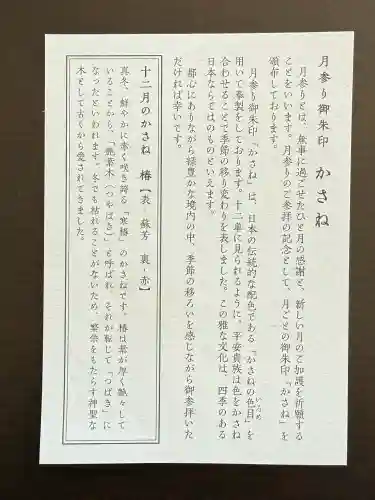 月参り御朱印　かさね
月参りとは、無事に過ごせたひと月の感謝と、新しい月のご加護を祈願する
ことをいいます。月参りのご参拝の記念として、月ごとの御朱印「かさね」を
頒布しております。
月参り御朱印「かさね」は、日本の伝統的な配色である「かさねの色目」を
いろめ
用いて奉製をしております。十二単に見られるように、平安貴族は色をかさね
合わせることで季節の移り変わりを表しました。この雅な文化は、四季のある
日本ならではのものといえます。
都心にありながら緑豊かな境内の中、季節の移ろいを感じながら御参拝いた
だければ幸いです。
十二月のかさね　椿【表　蘇芳　裏‐赤】
真冬、鮮やかに赤く咲き誇る「寒椿」のかさねです。椿は葉が厚く艶々して
いることから、「艶葉木（つやばき）」と呼ばれ、それが転じて「つばき」に
なったといわれます。冬でも枯れることがないため、繁栄をもたらす神聖な
木として古くから愛されてきました。